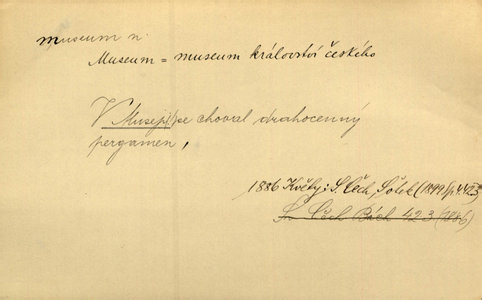 museum n.
Museum = museum království českého
V Museji se choval drahocenný
pergamen,
1886 Květy: S. Čech, Šotek (1899) p. 423
Sv. Čech Pách 423 (1886)